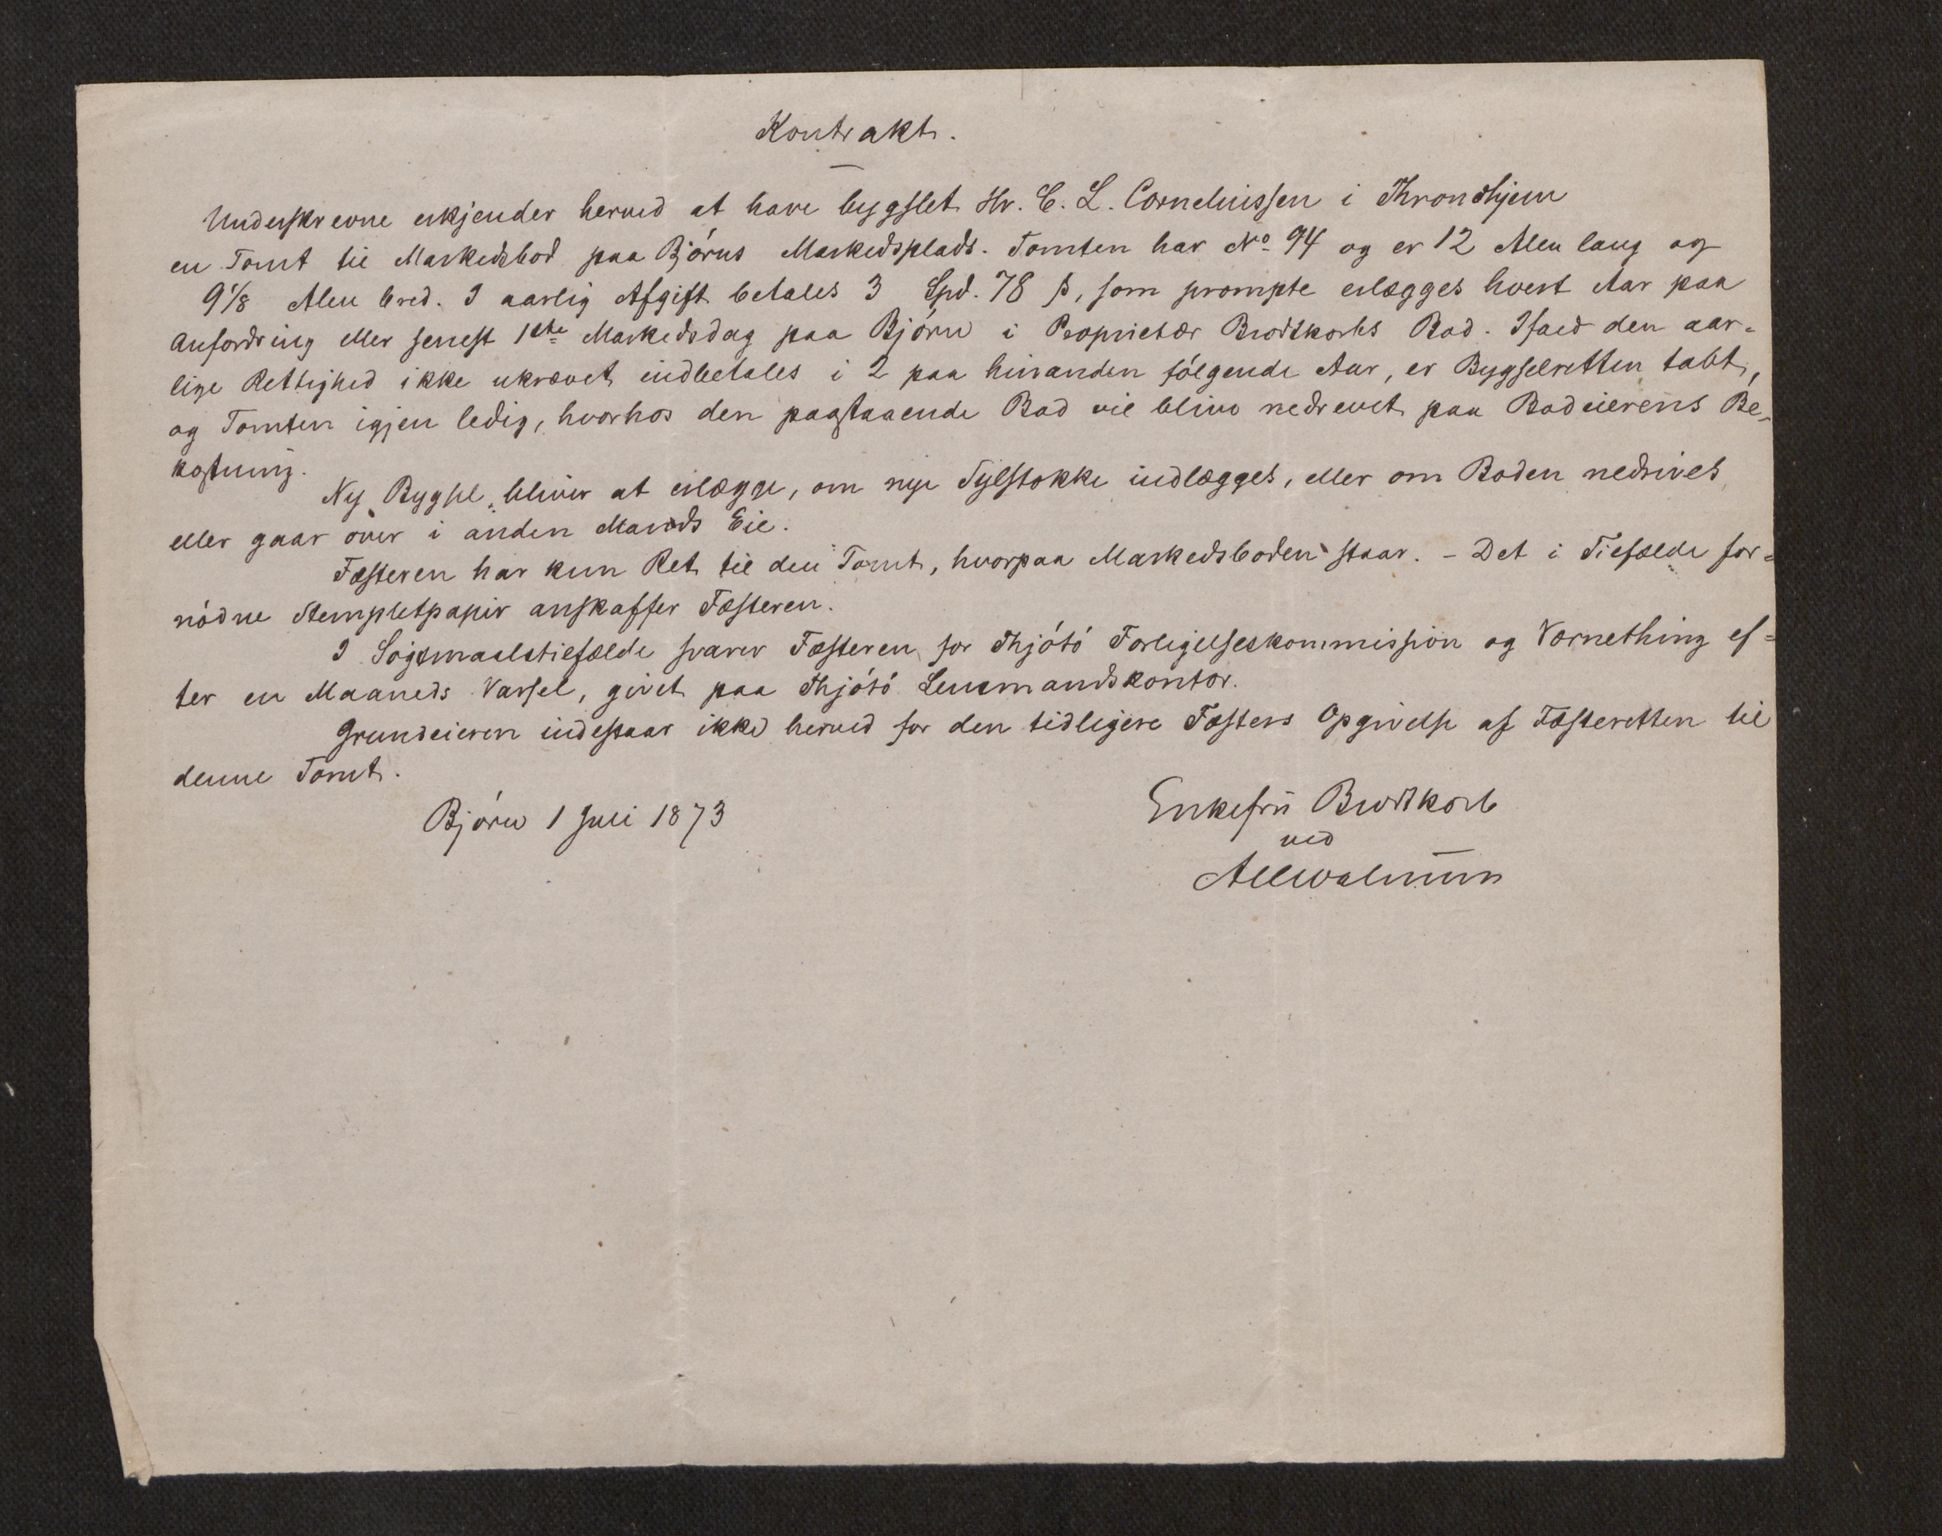 Kontrakt.
Underskrevne erkjender herved at have bygslet Hr. C. L. Corneliussen i Throndhjem
en Tomt til Markedsbod paa Bjórns Markedsplads. Tomten har No 94 og er 12 Alen lang og
9 1/8 Alen bred. I aarlig Afgift betales 3 Spd. 78 ß, som prompte erlægges hvert Aar paa
Anfordring eller senest 1ste Markedsdag paa Bjórn i Proprietær Brodtkorbs Bod. Ifald den aar-
lige Rettighed ikke ukrævet indbetales i 2 paa hinanden fólgende Aar, er Bygselretten tabt,
og Tomten igjen ledig, hvorhos den paastaaende Bod vil blive nedrevet paa Bodeierens Be-
kostning.
Ny Bygsel bliver at erlægge, om nye Sylstokke indlægges, eller om Boden nedrives
eller gaar over i anden Mands Eie.
Fæsteren har kun Ret til den Tomt, hvorpaa Markedsboden staar. - Det i Tilfælde for=
nódne Stempletpapir anskaffer Fæsteren.
I Sógsmaalstilfælde svarer Fæsteren for Thjótó Forligelseskommission og Værnething ef=
ter en Maaneds Varsel, givet paa Thjótó Lensmandskontor.
Grundeieren indestaar ikke herved for den tidligere Fæsters Opgivelse af Fæsteretten til
denne Tomt.
Bjórn 1 Juli 1873
Enkefru Brodtkorb
ved